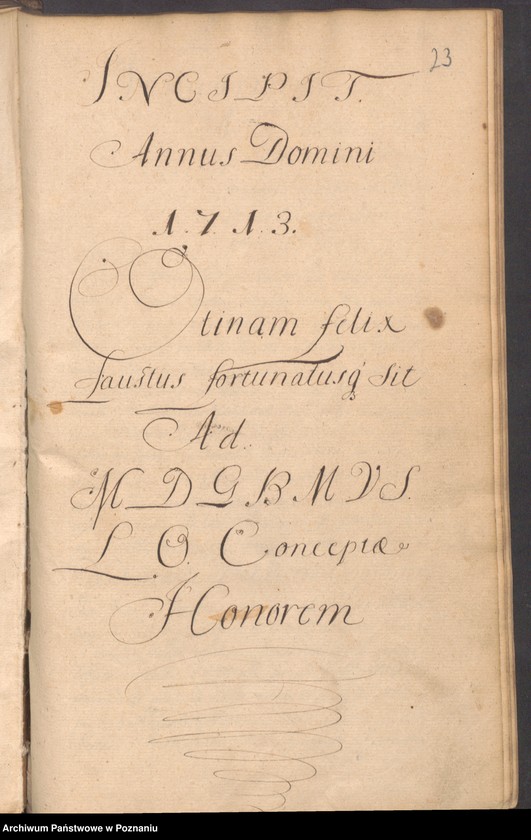 23
INCIPIT.
Annus Domini
1.7.1.3.
Utinam felix
faustus fortunatusq́ sit
Ad.
M. D. G. B. M. V. S.
L. O. Conceptæ
Honorem
Archiwum Państwowe w Poznaniu